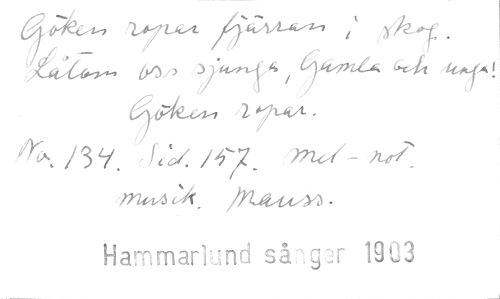 Göken ropar fjärran i skog.
Låtom oss sjunga, Gamla och unga!
Göken ropar.
No. 134. Sid. 157. Mel-not.
musik. Mauss.
Hammarlund sånger 1903